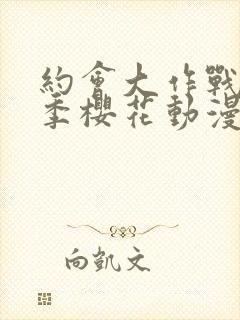 約會大作戰
季櫻花動漫
向凱文